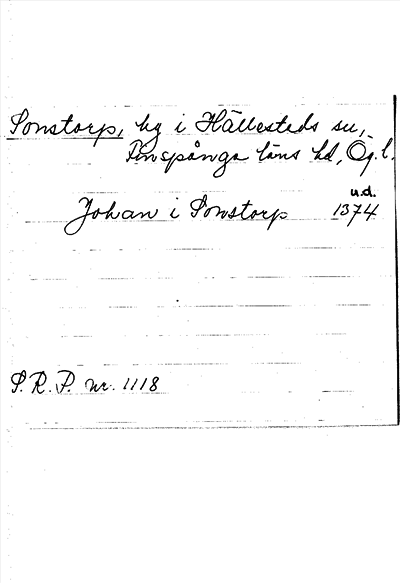 Sonstorp, by i Hällesteds sn,
Finspånga läns hd, Ög. l.
u.d.
Johan i Sonstorp 1374
S.R.P. nr. 1118